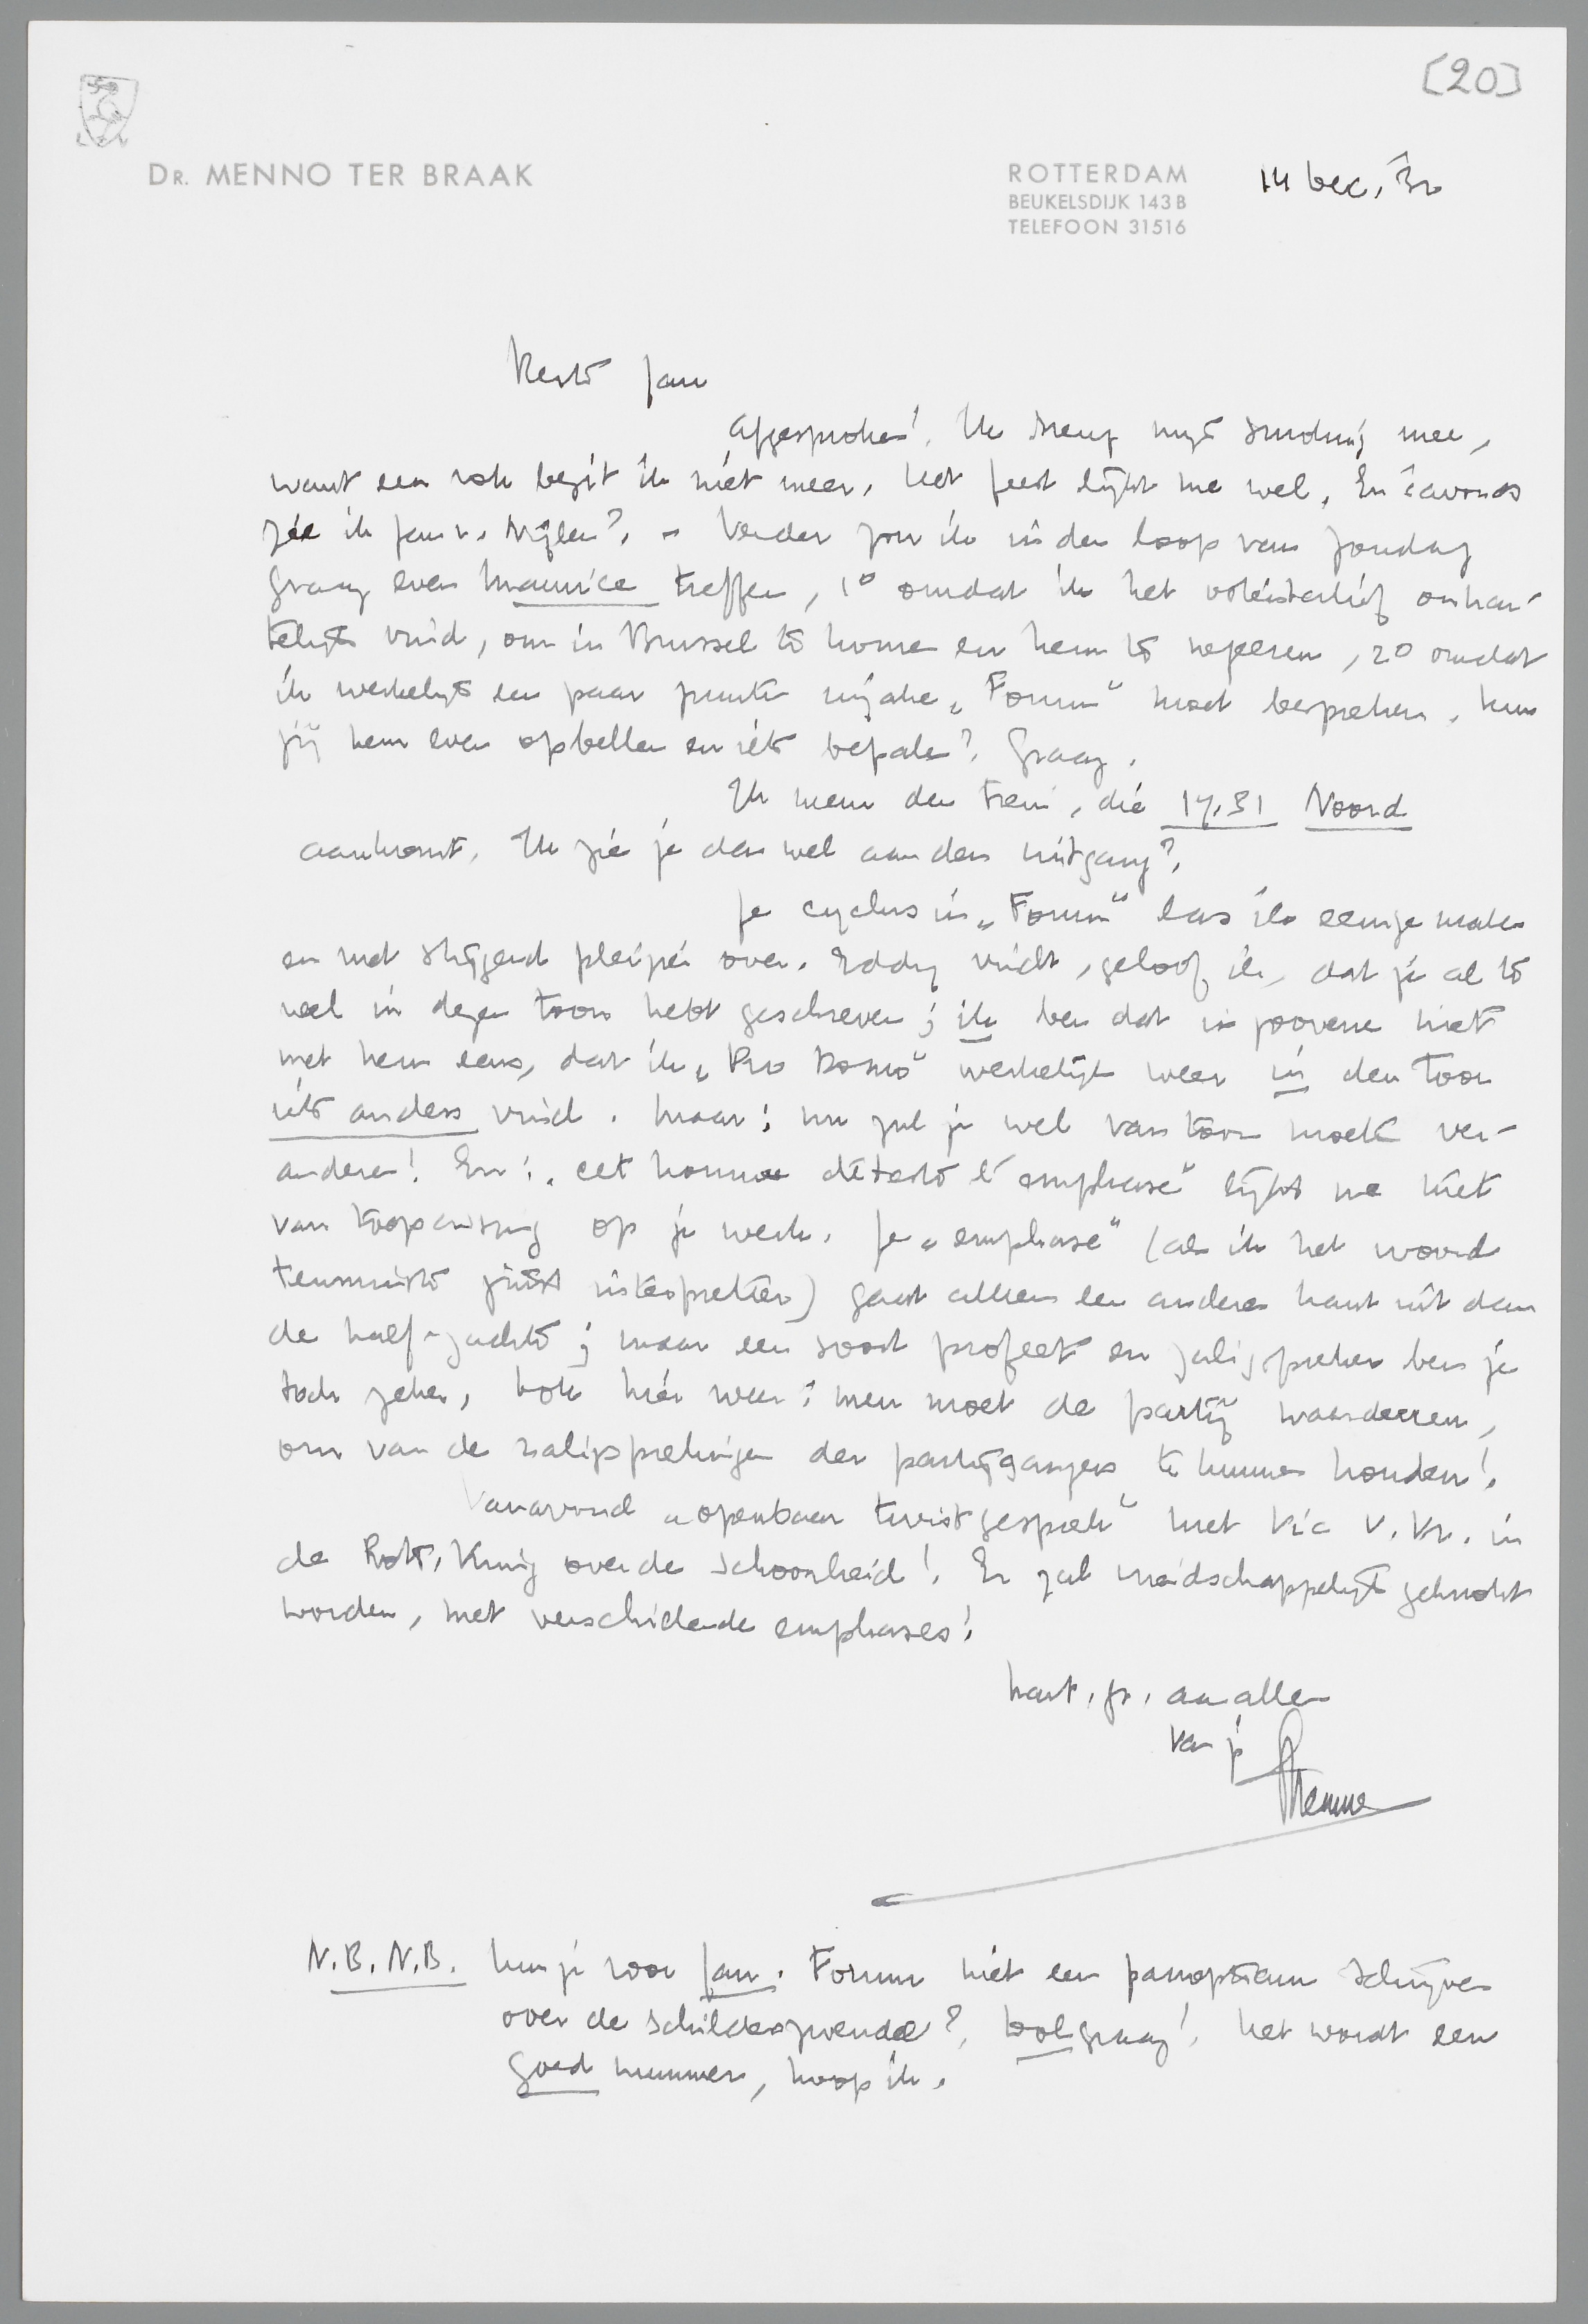 [20]
DR. MENNO TER BRAAK
ROTTERDAM
BEUKELSDIJK 143 B
TELEFOON 31516
14 Dec. '32
Beste Jan
Afgesproken! Ik breng mijn smoking mee,
want een rok bezit ik niet meer. Het feest lijkt me wel. En 's avonds
zie ik Jan v. Nijlen? – Verder zou ik in den loop van Zondag
graag even Maurice treffen, 1° omdat ik het onhar-
telijk vind, om in Brussel te komen en hem te negeeren, 2° omdat
ik werkelijk een paar punten inzake „Forum" moet bespreken. Kun
jij hem even opbellen en iets bepalen? Graag.
Ik neem den trein, die 17.31 Noord
aankomt. Ik zie je dan wel aan den uitgang?
Je cyclus in „Forum" las ik eenige malen
en met stijgend pleizier over. Eddy vindt, geloof ik, dat je al te
veel in dezen toon hebt geschreven; ik ben dat in zooverre niet
met hem eens, dat ik „Pro Domo" werkelijk weer in den toon
iets anders vind. Maar: nu zul je wel van toon moeten ver-
anderen! En: „cet homme déteste l'emphase" lijkt me niet
van toepassing op je werk. Je „emphase" (als ik het woord
tenminste juist interpreteer) gaat alleen een anderen kant uit dan
de half-zachte; maar een soort profeet en zaligspreker ben je
toch zeker. Ook hier weer: men moet de partij waardeeren,
om van de zaligsprekingen der partijgangers te kunnen houden!
Vanavond „openbaar twistgesprek" met Vic v. Vr. in
de Rott. Kring over de schoonheid! Er zal vriendschappelijk geknokt
worden, met verschillende emphases!
hart. gr. aan allen
van je
Menno
N.B. N.B. Kun je voor Jan. Forum niet een panopticum schrijven
over de schilderszwendel? Dolgraag! Het wordt een
goed nummer, hoop ik.